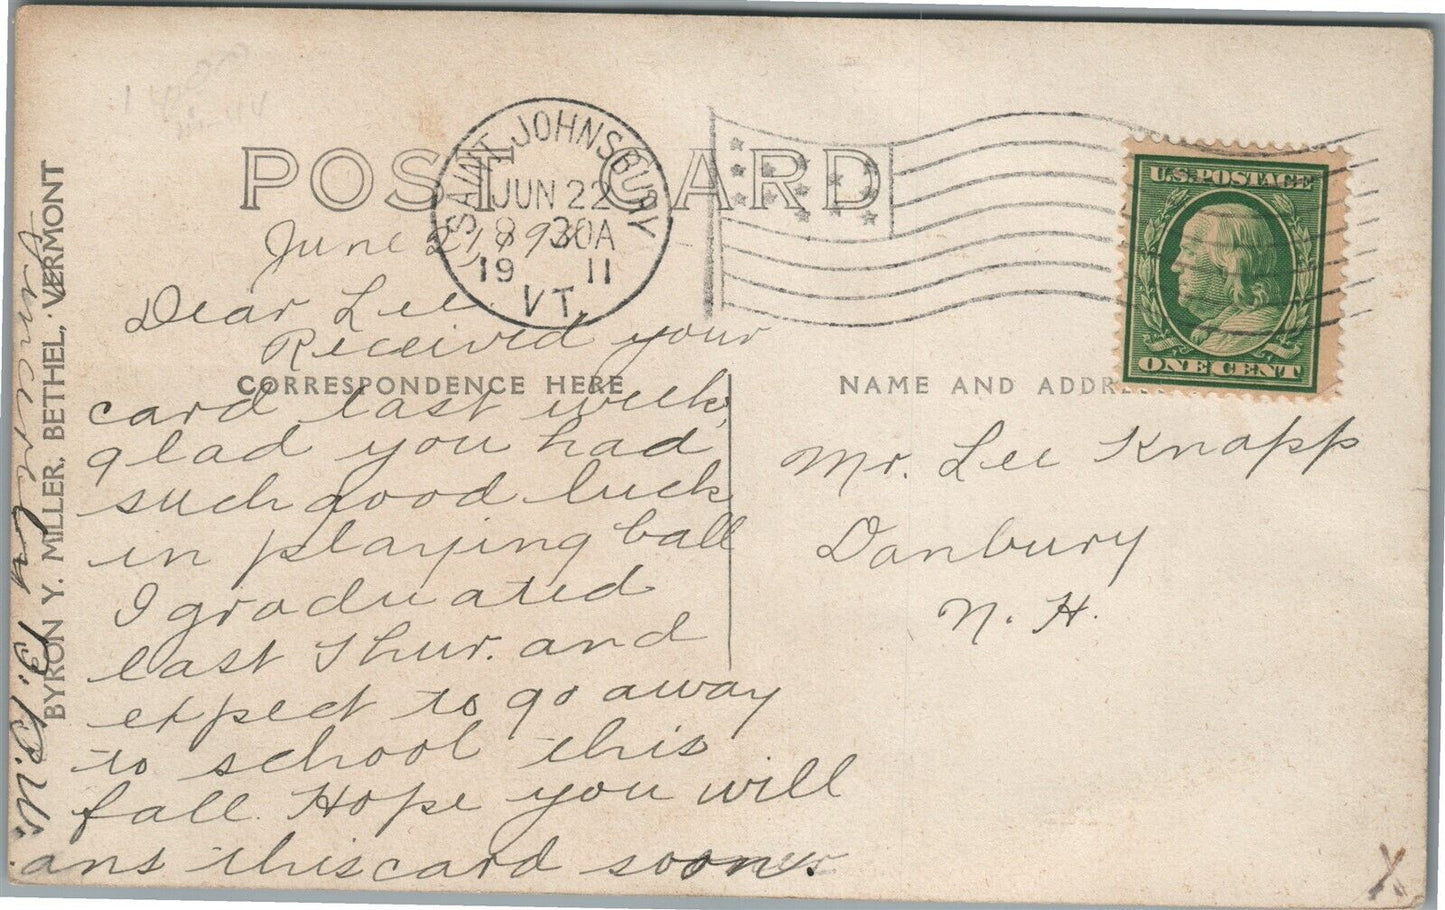 POST CARD
SAINT JOHNSBURY
JUN 22
8 30A
19 11
VT.
U.S. POSTAGE
ONE CENT
June 21,
Dear Lee
Received your
CORRESPONDENCE HERE
card last week,
glad you had
such good luck
in playing ball
I graduated
last Thur. and
expect to go away
to school this
fall. Hope you will
ans this card soon.
NAME AND ADDR
Mr. Lee Knapp
Danbury
N. H.
BYRON Y. MILLER, BETHEL, VERMONT
X